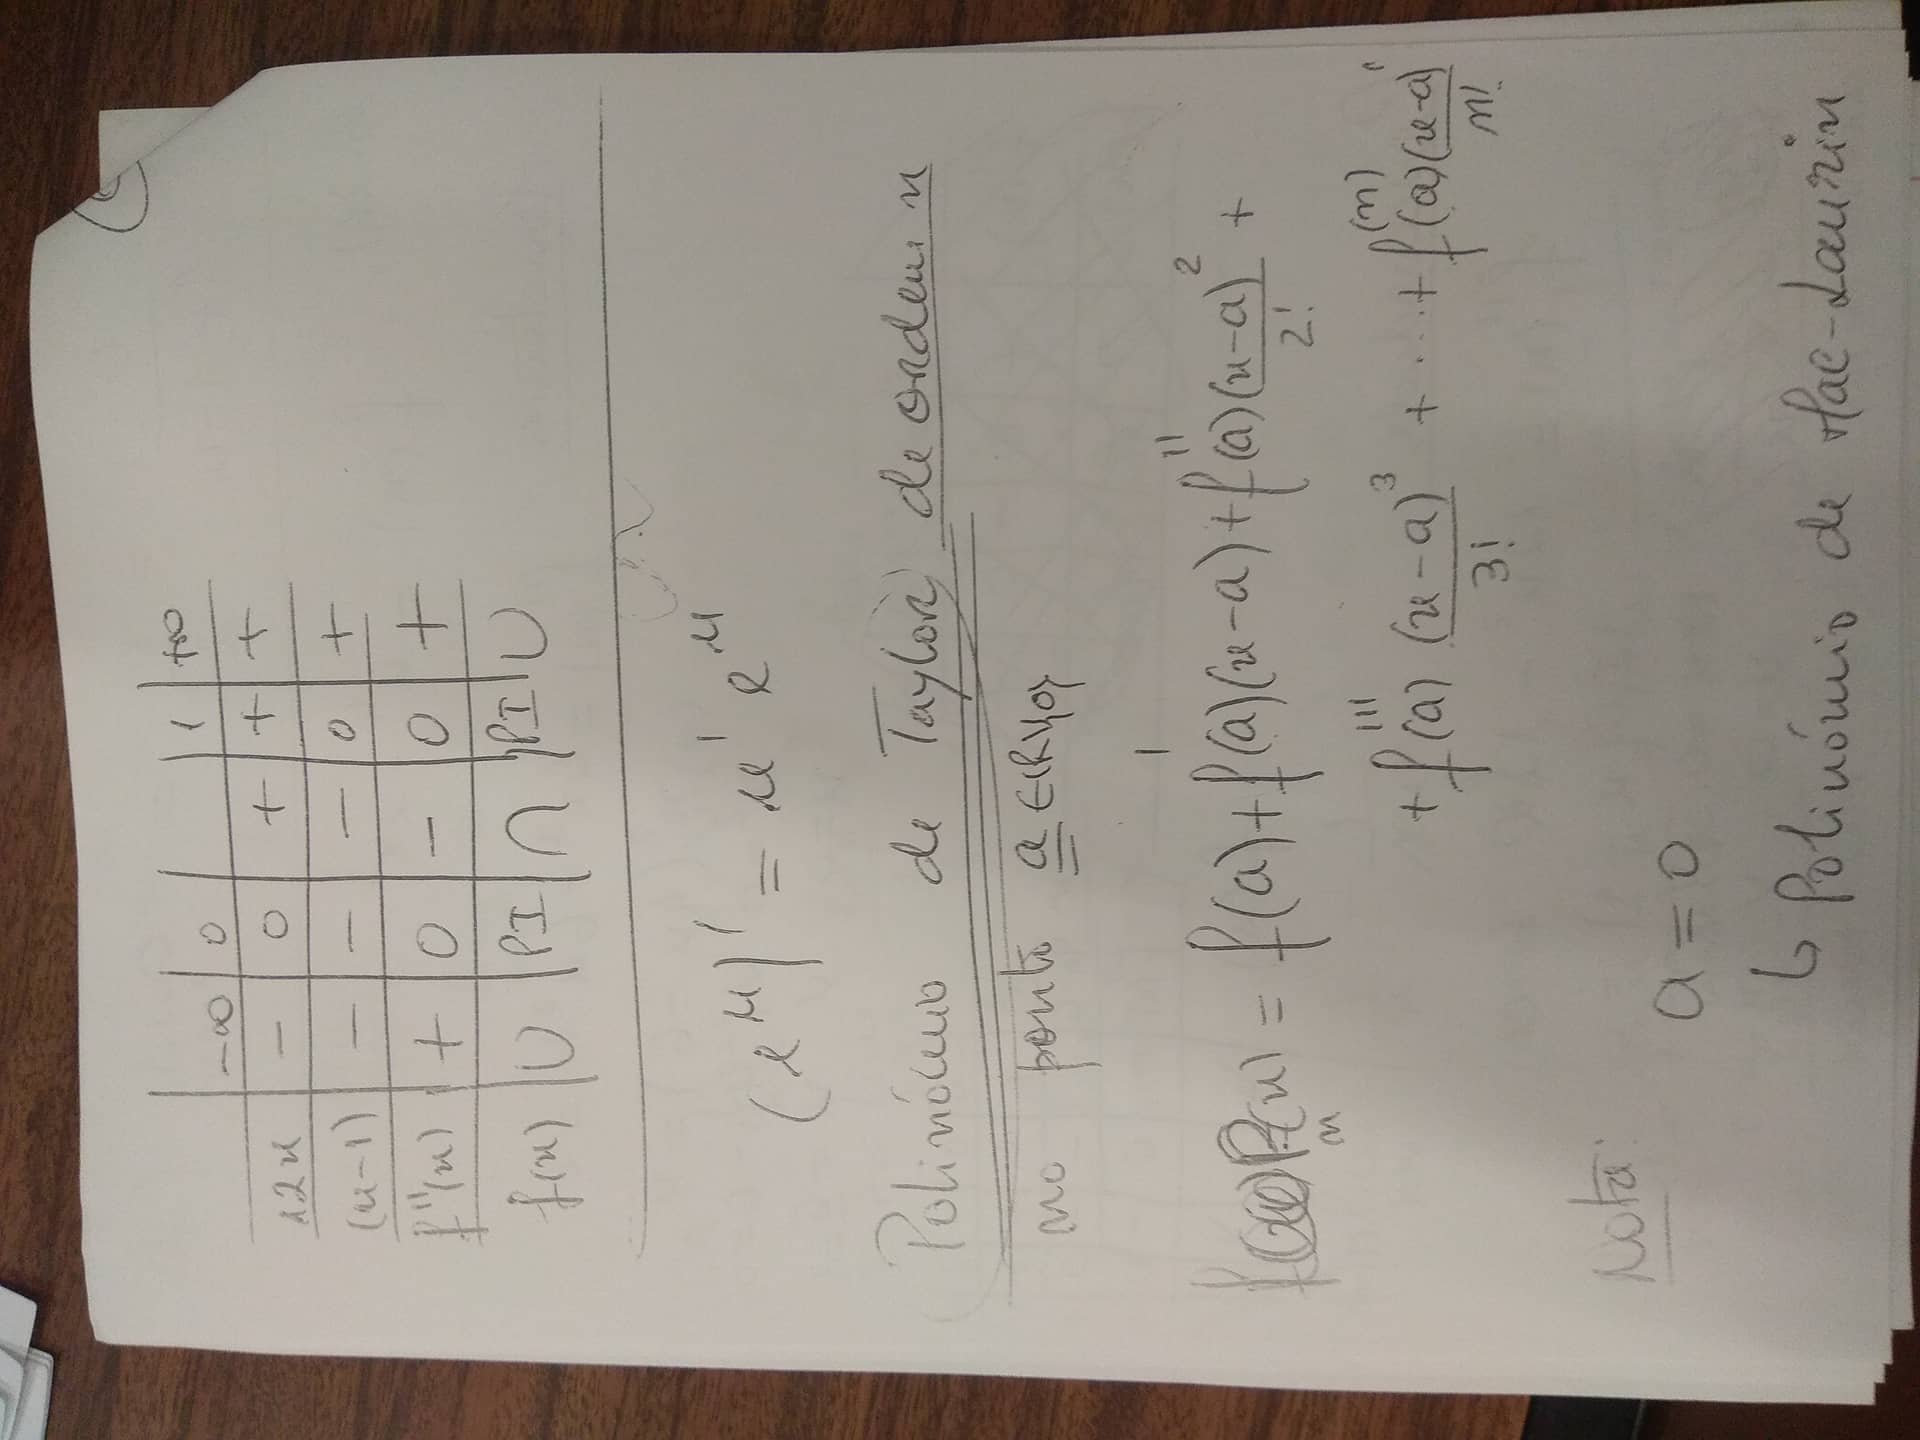 -∞ 0 1 +∞
12x - 0 + + +
(x-1) - - - 0 +
f''(x) + 0 - 0 +
f(x) ∪ PI ∩ PI ∪
(e^u)' = u' e^u
Polinómio de Taylor de ordem n
no ponto a ∈ ℝ\{0}
P_n(x) = f(a) + f'(a)(x-a) + f''(a)(x-a)^2/2! +
+ f'''(a) (x-a)^3/3! + ... + f^(n)(a)(x-a)/n!
Nota:
a = 0
↳ Polinómio de Mac-Laurin